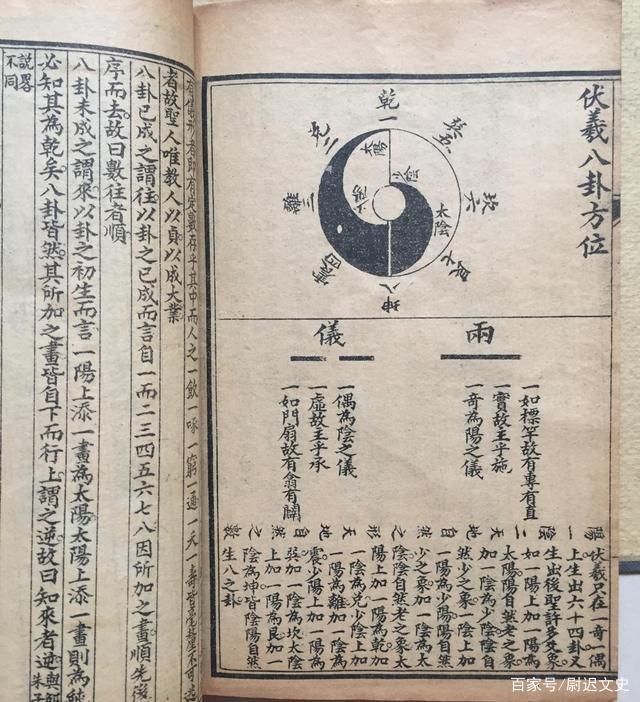 伏羲八卦方位
乾一
兌二
離三
震四
巽五
坎六
艮七
坤八
太陽
少陰
少陽
太陰
兩
儀
一如標竿故有專有直
一實故主乎施
一奇為陽之儀
一偶為陰之儀
一虛故主乎承
一如門扇故有翕有闢
伏羲只在一奇一偶
上生出六十四卦又
生出後聖許多爻象
如一陽上加一陽為
太陽陽自然老之象
加一陰為少陰陰自
然少之象一陰上加
一陽為少陽陽自然
少之象加一陰為太
陰陰自然老之象太
陽上加一陽為乾加
一陰為兌少陰上加
一陽為離加一陰為
震少陽上加一陽為
巽加一陰為坎太陰
上加一陽為艮加一
陰為坤皆陰陽自然
生八之卦
有儀形者即有定數存乎其中而人之一飲一啄一窮一通一夭一壽皆毫釐不可逃
者故聖人唯教人以貞以成大業
八卦已成之謂往以卦之已成而言自一而二三四五六七八因所加之畫順先後
序而去故曰數往者順
八卦未成之謂來以卦之初生而言一陽上添一畫為太陽太陽上添一畫則為純
必知其為乾矣八卦皆然其所加之畫皆自下而行上謂之逆故曰知來者逆與朱子
說畧不同
百家号/尉迟文史